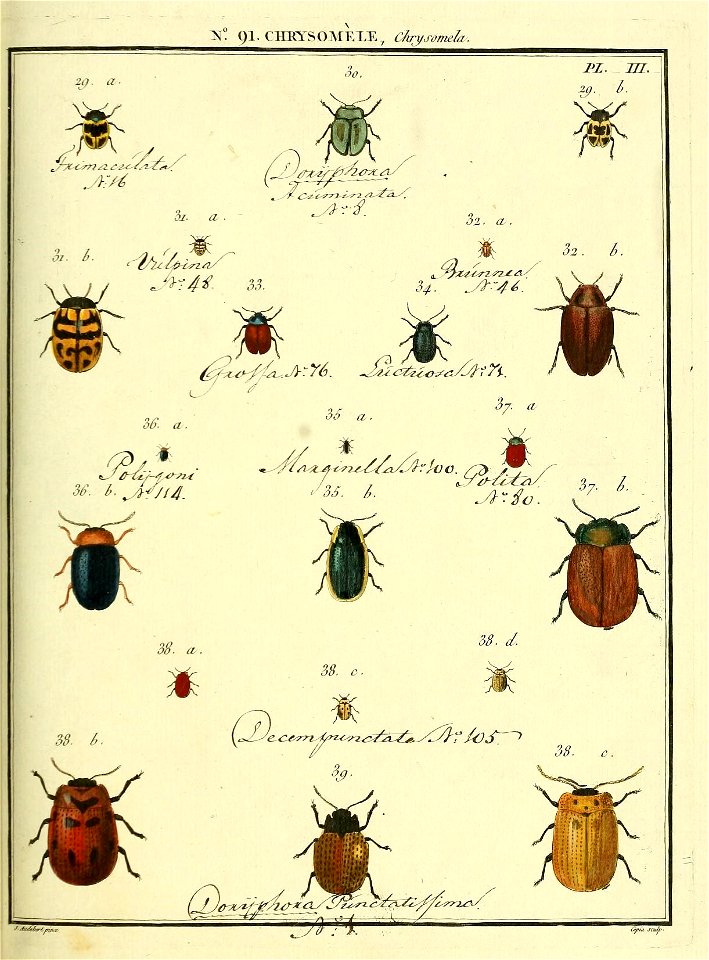 N.º 91. CHRYSOMÈLE, Chrysomela.
PL. III.
29. a.
30.
29. b.
Trimaculata.
Nº 16
Doryphora
Acuminata.
Nº 8.
31. a.
32. a.
31. b.
Vulpina
Nº 48.
33.
Brunnea.
Nº 46.
34.
32. b.
Grossa. Nº 76.
Luctuosa Nº 71.
36. a.
35 a.
37. a
Polygoni
Nº 114.
Marginella Nº 100.
Polita.
Nº 80.
36. b.
35. b.
37. b.
38. a.
38. c.
38. d.
Decempunctata Nº 105.
38. b.
39.
38. c.
Doryphora Punctatissima.
Nº 1.
J. Audebert pinx.
Copia Sculp.